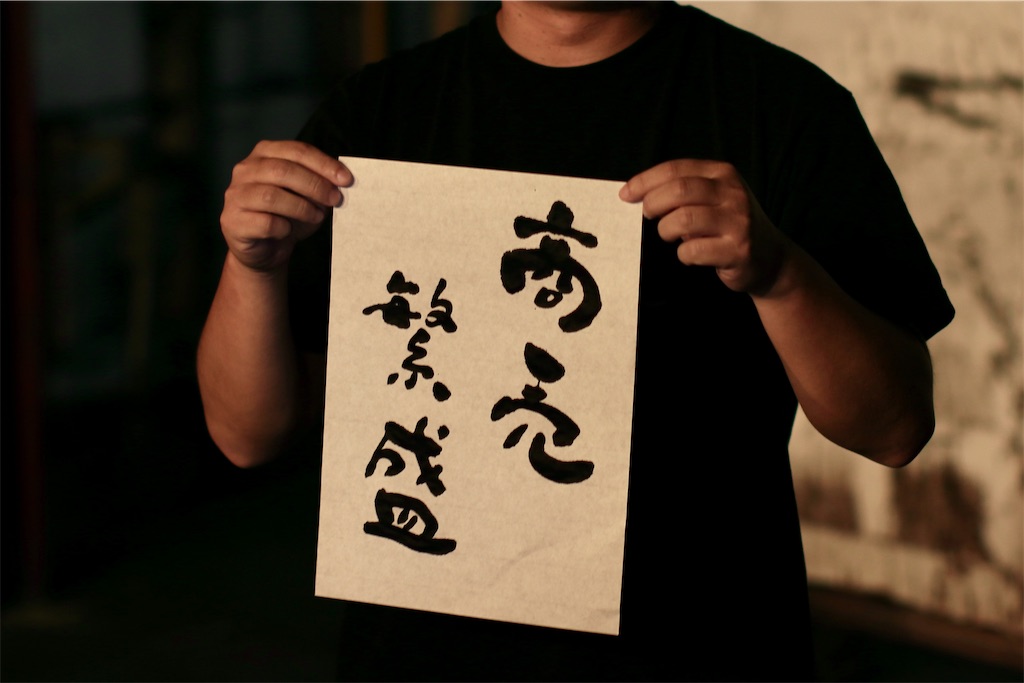 商売
繁盛